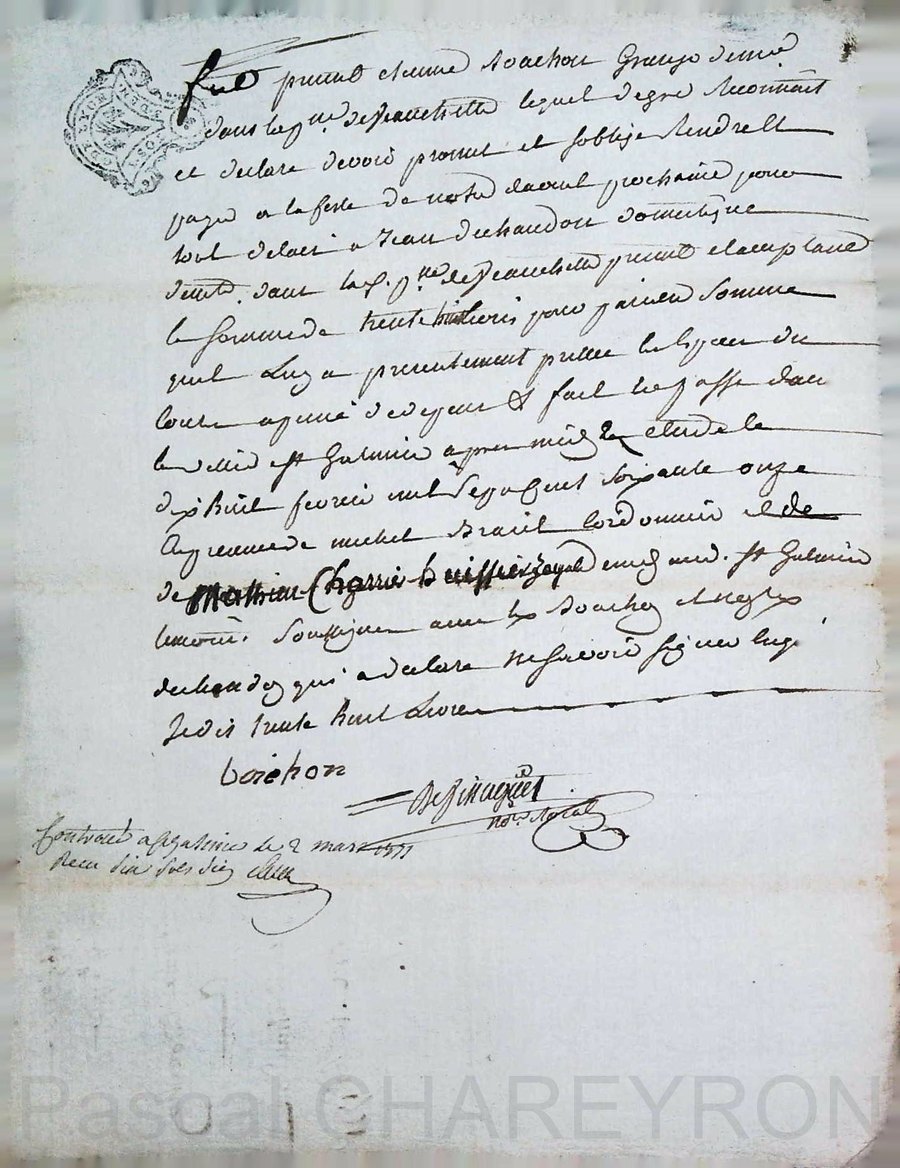 fut present etienne Boachon Granger demt
dans la psse de Veauchette lequel de gré reconnoit
et declare devoir promet et soblige rendre et
payer a la feste de notre daoust prochaine pour
tout delai a Jean dechandon domestique
demt. dans la d. psse. de Veauchette present et acceptant
la somme de trente huit livres pour pareille somme
quil luy a presentement prettée en espèces du
cours a peine de depens & fait et passé dans
la ville de st Galmier apres midy etude le
dix huit fevrier mil sept cent soixante onze
en presence de michel cordonnier et de
de Mathieu Charrier huissier royal dud. st Galmier
temoins soussignés avec led. Boachon et non led.
dechandon qui a declaré ne savoir signer enquis
Je dis trente huit Livres
boachon
nore. Royal
Controlé a st galmier le 2 mars 1771
Recu six sols six den.
Pascal CHAREYRON